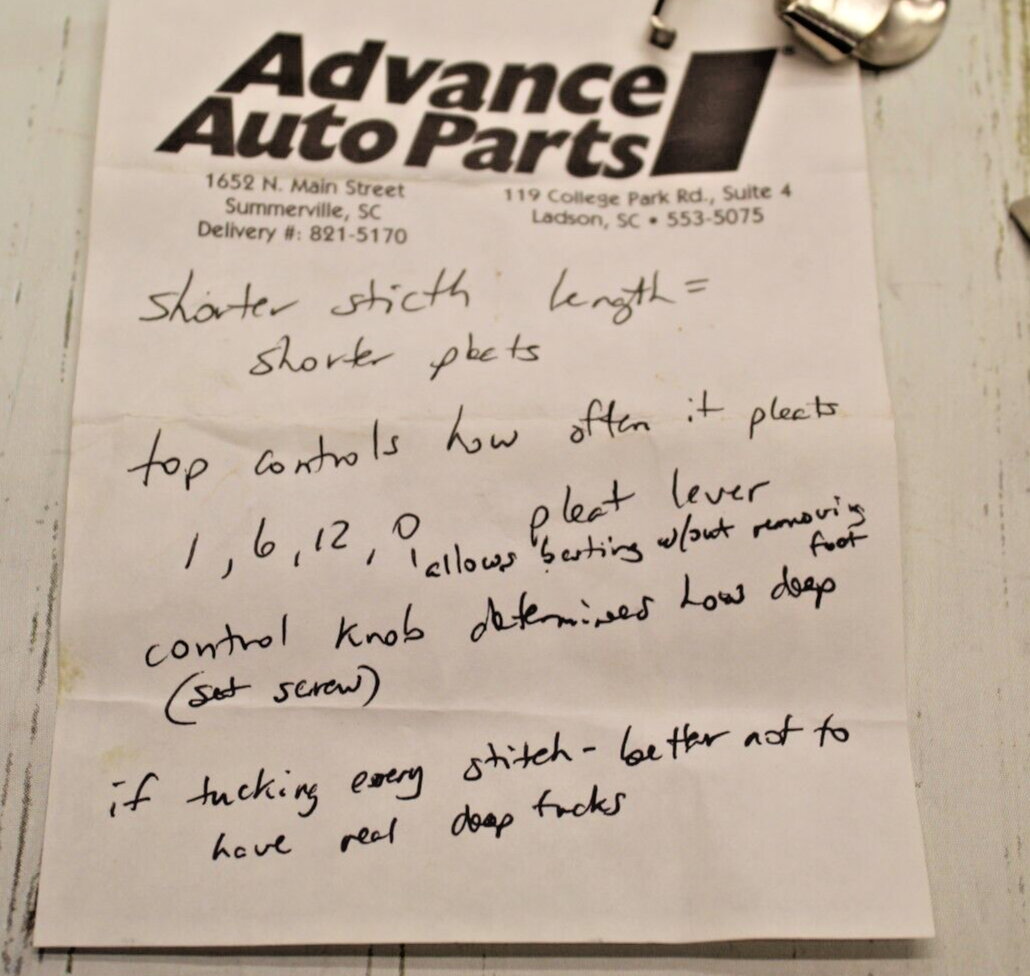 Advance
Auto Parts
1652 N. Main Street
Summerville, SC
Delivery #: 821-5170
119 College Park Rd., Suite 4
Ladson, SC • 553-5075
shorter sticth length =
shorter pleats
top controls how often it pleats
1, 6, 12, 0 pleat lever
allows basting w/out removing
foot
control knob determines how deep
(set screw)
if tucking every stitch - better not to
have real deep tucks